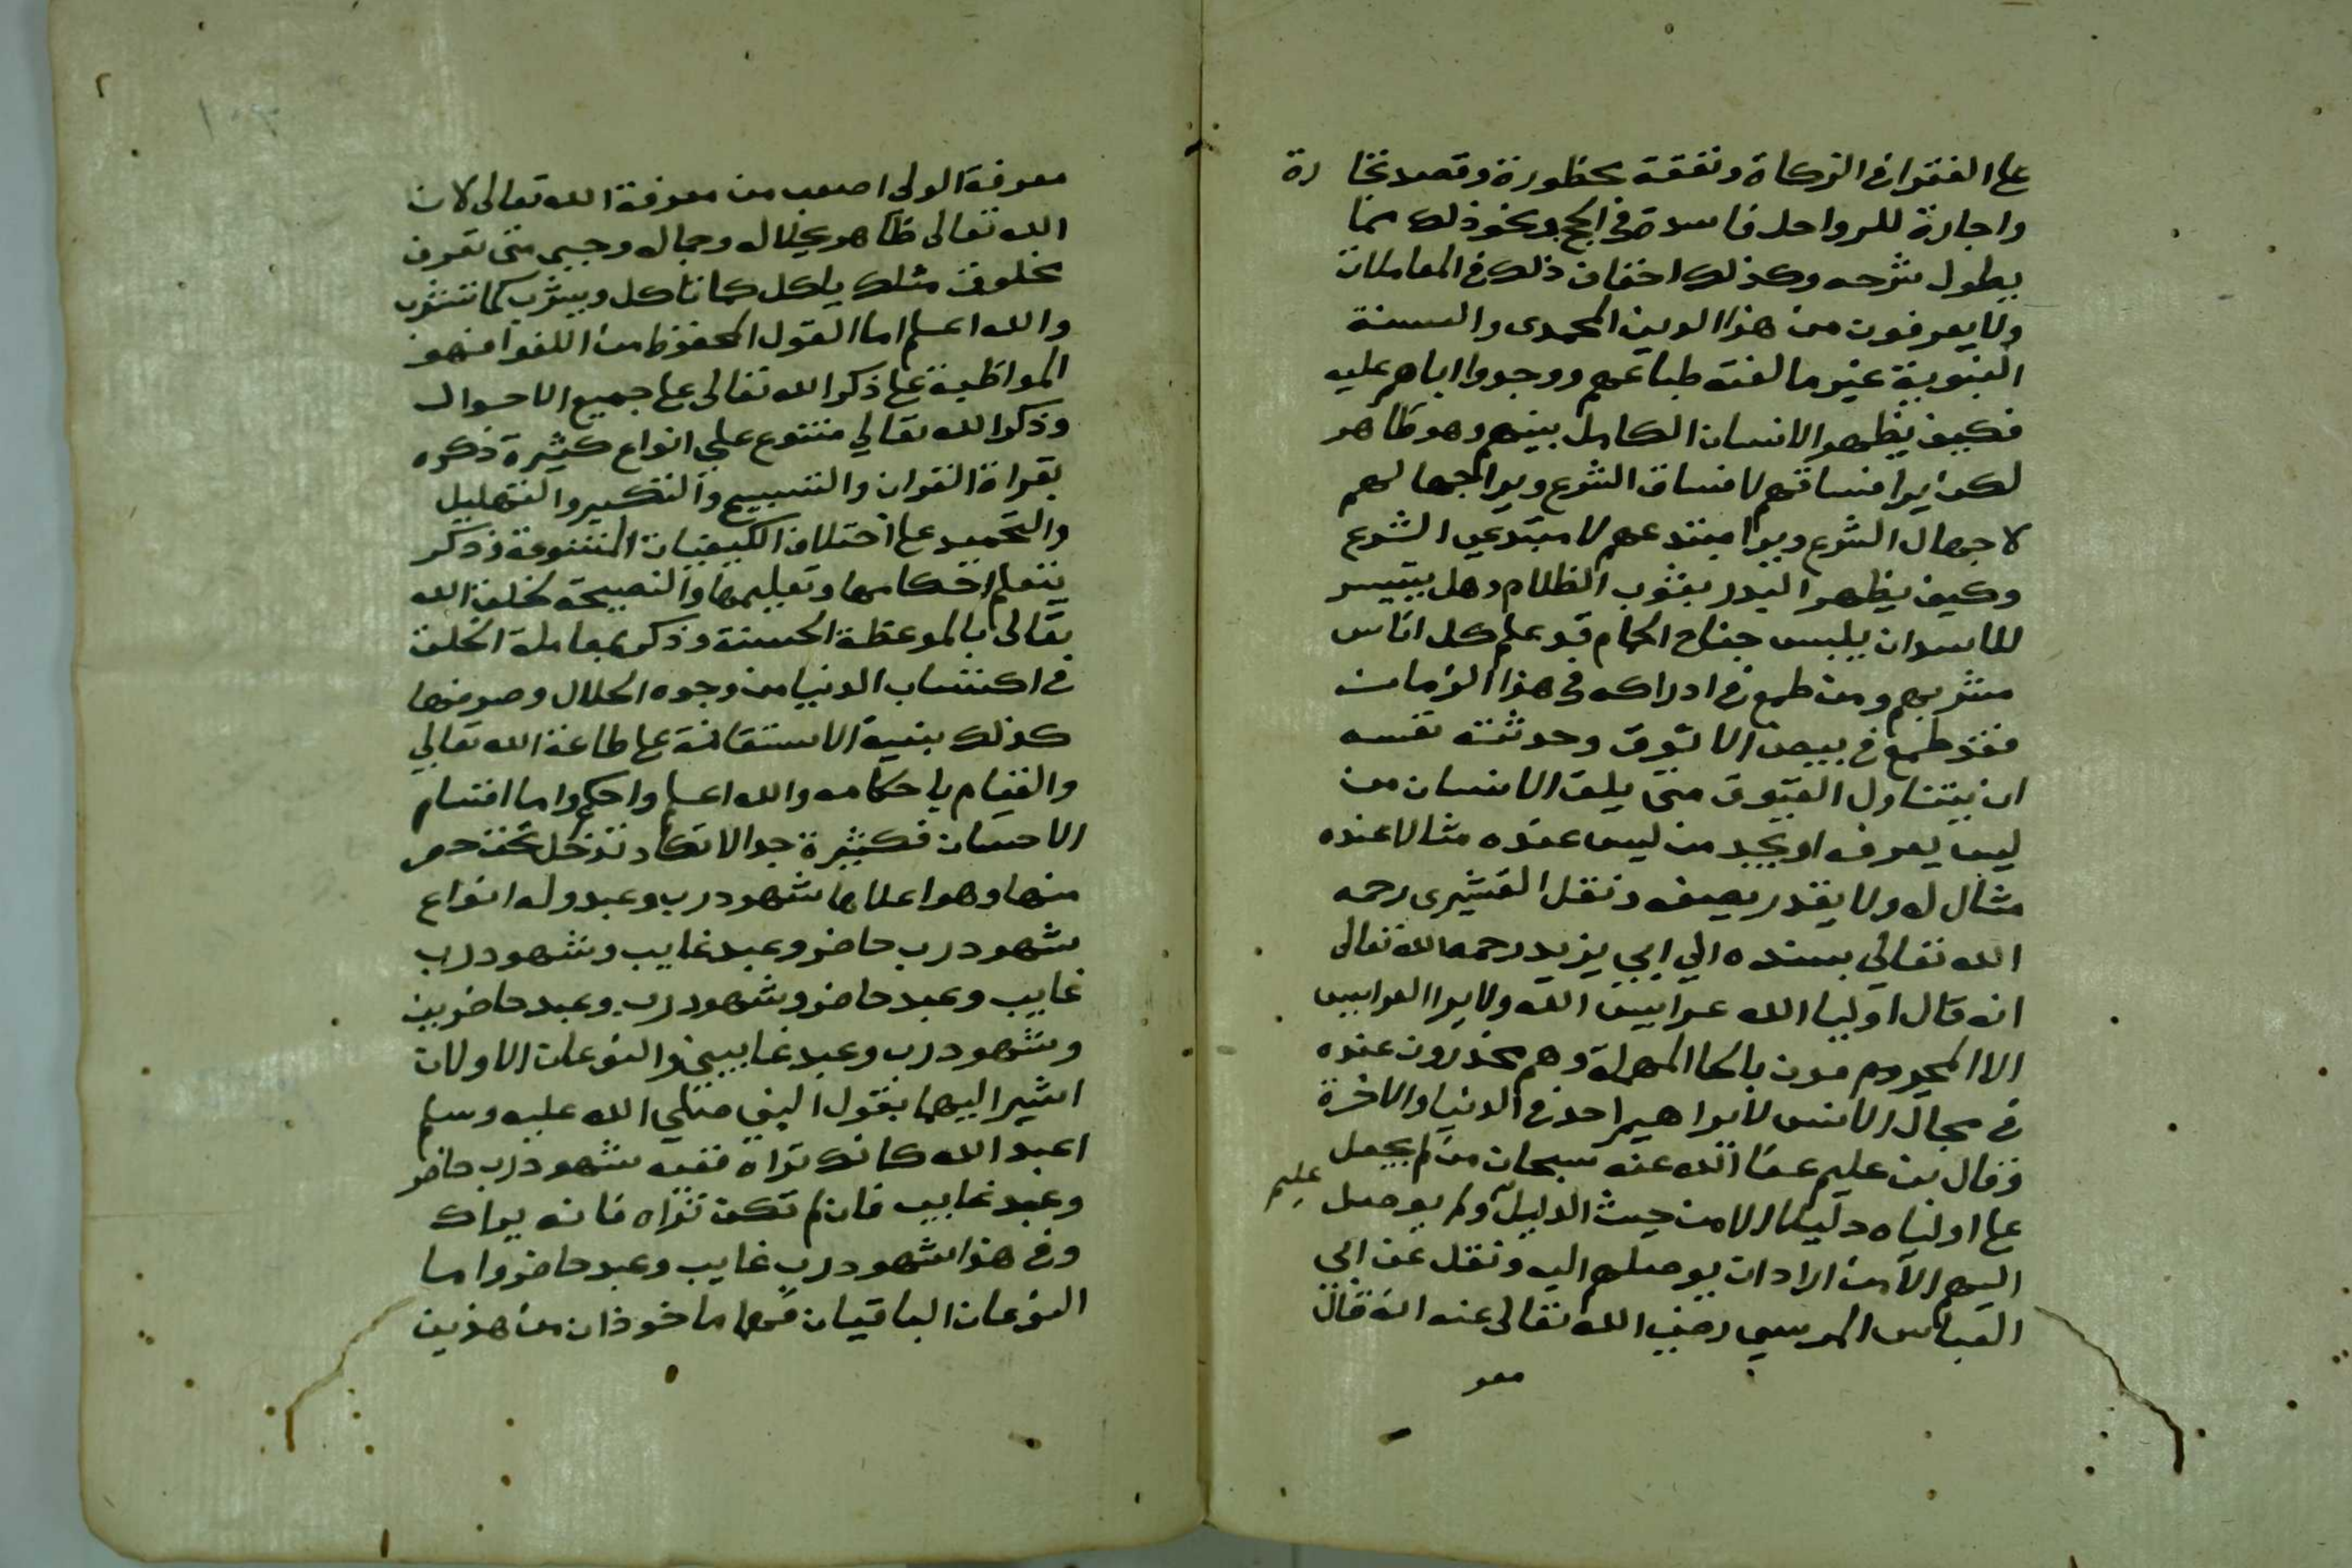 على الفقرا في الزكاة ونفقة محظورة وقصد تجارة
واجارة للرواحل فاسدة في الحج ونحو ذلك مما
يطول شرحه وكذلك اخفاف ذلك في المعاملات
ولا يعرفون من هذا الدين المحمدى والسنة
النبوية غير ما الفته طباعهم ووجدوا اباهم عليه
فكيف يظهر الانسان الكامل بينهم وهو ظاهر
لكن يرا فساقهم لا فساق الشرع ويرا جهالهم
لا جهال الشرع ويرا مبتدعهم لا مبتدعي الشرع
وكيف يظهر البدر بغرب الظلام وهل يتيسر
للاسد ان يلبس جناح الحمام قد علم كل اناس
مشربهم ومن طمع في ادراكه في هذا الزمان
فقد طمع في بيض الانوق وحدثته نفسه
ان يتناول العيوق متى يلق الانسان من
ليس يعرفه او يجد من ليس عنده مثالا عنده
مثال له ولا يقدر يصفه ونقل القشيرى رحمه
الله تعالي بسنده الي ابي يزيد رحمه الله تعالى
انه قال اوليا الله عرايس الله ولا يرا العرايس
الا المجرومون بالحا المهملة وهم مخدرون عنده
في مجال الانس لا يراهم احد في الدنيا والاخرة
وقال بن عليم عفا الله عنه سبحان من لم يجعل
على اولياه دليلا الا من حيث الدليل عليه ولم يوصل
اليهم الا من اراد ان يوصلهم اليه ونقل عن ابي
العباس المرسي رضي الله تعالى عنه انه قال
معر
٢
معرفة الولى اصعب من معرفة الله تعالى لان
الله تعالى ظاهر بجلاله وجماله وحيي متى تعرف
مخلوق مثلك ياكل كما تاكل ويشرب كما تشرب
والله اعلم اما القول المحفوظ من اللغو فهو
المواظبة على ذكر الله تعالى على جميع الاحوال
وذكر الله تعالي متنوع علي انواع كثيرة ذكره
بقراة القران والتسبيح والتكبير والتهليل
والتحميد على اختلاف الكيفيات المتنوعة وذكر
بتعلم احكامها وتعليمها والنصيحة لخلق الله
تعالى بالموعظة الحسنة وذكر بمعاملة الخلق
في اكتساب الدنيا من وجوه الحلال وصرفها
كذلك بنية الاستعانة على طاعة الله تعالي
والقيام باحكامه والله اعلم واحكم واما اقسام
الاحسان فكثيرة جدا لا تكاد تدخل تحت حصر
منها وهو اعلاها شهود رب وعبد وله انواع
شهود رب حاضر وعبد غايب وشهود رب
غايب وعبد حاضر وشهود رب وعبد حاضرين
وشهود رب وعبد غايبين والنوعان الاولان
اشير اليهما بقول النبي صلي الله عليه وسلم
اعبد الله كانك تراه ففيه شهود رب حاضر
وعبد غايب فان لم تكن تراه فانه يراك
وفي هذا شهود رب غايب وعبد حاضر واما
النوعان الباقيان فهما ماخوذان من هذين